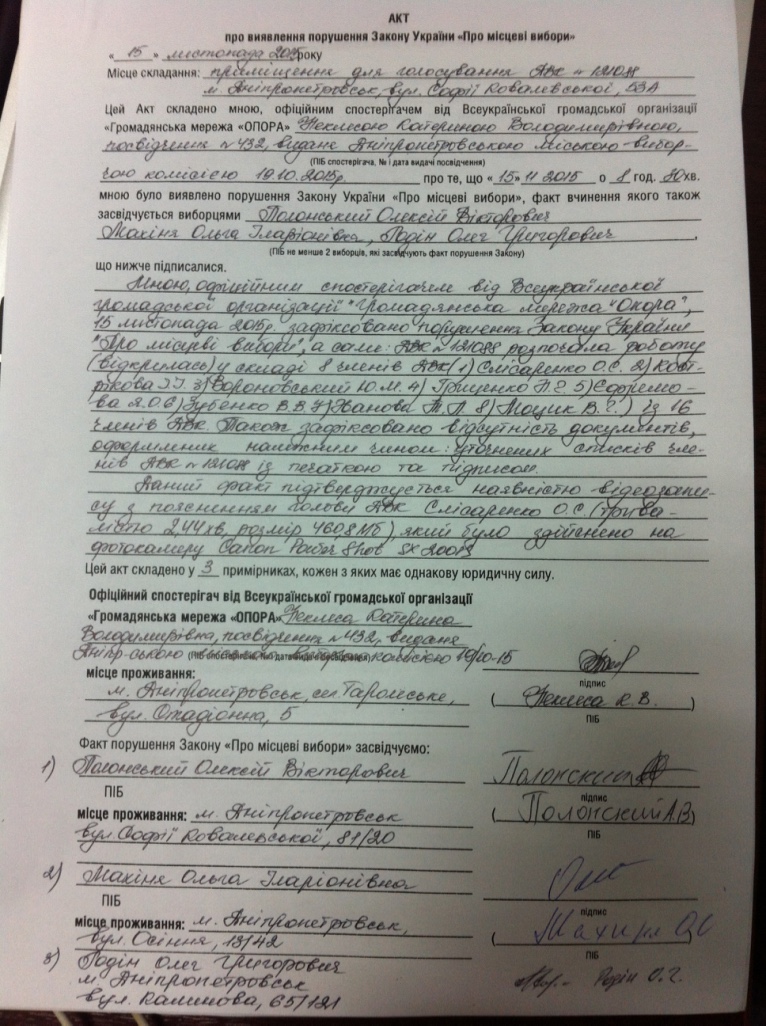 АКТ
про виявлення порушення Закону України «Про місцеві вибори»
« 15 » листопада 2015 року
Місце складання: приміщення для голосування ДВК № 121088
м. Дніпропетровськ, вул. Софії Ковалевської, 53А
Цей Акт складено мною, офіційним спостерігачем від Всеукраїнської громадської організації
«Громадянська мережа «ОПОРА» Неклесою Катериною Володимирівною,
посвідчення №432, видане Дніпропетровською міською вибор-
(ПІБ спостерігача, № і дата видачі посвідчення)
чою комісією 19.10.2015р. про те, що « 15 » 11 2015 о 8 год. хв.
мною було виявлено порушення Закону України «Про місцеві вибори», факт вчинення якого також
засвідчується виборцями Полонський Олексій Вікторович
Махіня Ольга Іларіонівна, Родін Олег Григорович
(ПІБ не менше 2 виборців, які засвідчують факт порушення Закону)
що нижче підписалися.
Мною, офіційним спостерігачем від Всеукраїнської
громадської організації "Громадянська мережа "Опора",
15 листопада 2015р. зафіксовано порушення Закону України
"Про місцеві вибори", а саме: ДВК № 121088 розпочала роботу
(відкрилась) у складі 8 членів ДВК (1) Слісаренко О.С. 2)
3) Вороновський Ю.М. 4) Гриценко 5) Єфремо-
ва 6) Зубенко В.В. 7) Іванова 8) Моцик В. ) із 16
членів ДВК. Також зафіксовано відсутність документів,
оформлених належним чином: уточнених списків чле-
нів ДВК № 121088 із печаткою та підписом.
Даний факт підтверджується наявністю відеозапи-
су з поясненням голови ДВК Слісаренко О.С. (трива-
лістю 2,44хв, розмір 460,8Мб), який було здійснено на
фотокамеру Canon Power Shot SX 200IS
Цей акт складено у 3 примірниках, кожен з яких має однакову юридичну силу.
Офіційний спостерігач від Всеукраїнської громадської організації
«Громадянська мережа «ОПОРА» Неклеса Катерина
Володимирівна, посвідчення №432, видане
Дніпр-ською комісією 19/10-15
місце проживання:
підпис
м. Дніпропетровськ, сел. Таромське,
( Неклеса К.В. )
вул. Стадіонна, 5
ПІБ
Факт порушення Закону «Про місцеві вибори» засвідчуємо:
1) Полонський Олексій Вікторович Полонский
ПІБ підпис
місце проживання: м. Дніпропетровськ ( Полонский А.В )
вул. Софії Ковалевської, 81/20 ПІБ
2) Махіня Ольга Іларіонівна
ПІБ підпис
місце проживання: м. Дніпропетровськ,
вул. Осіння, 13/42 ПІБ
3) Родін Олег Григорович
м. Дніпропетровськ Родін О.Г.
вул. Калинова, 65/121